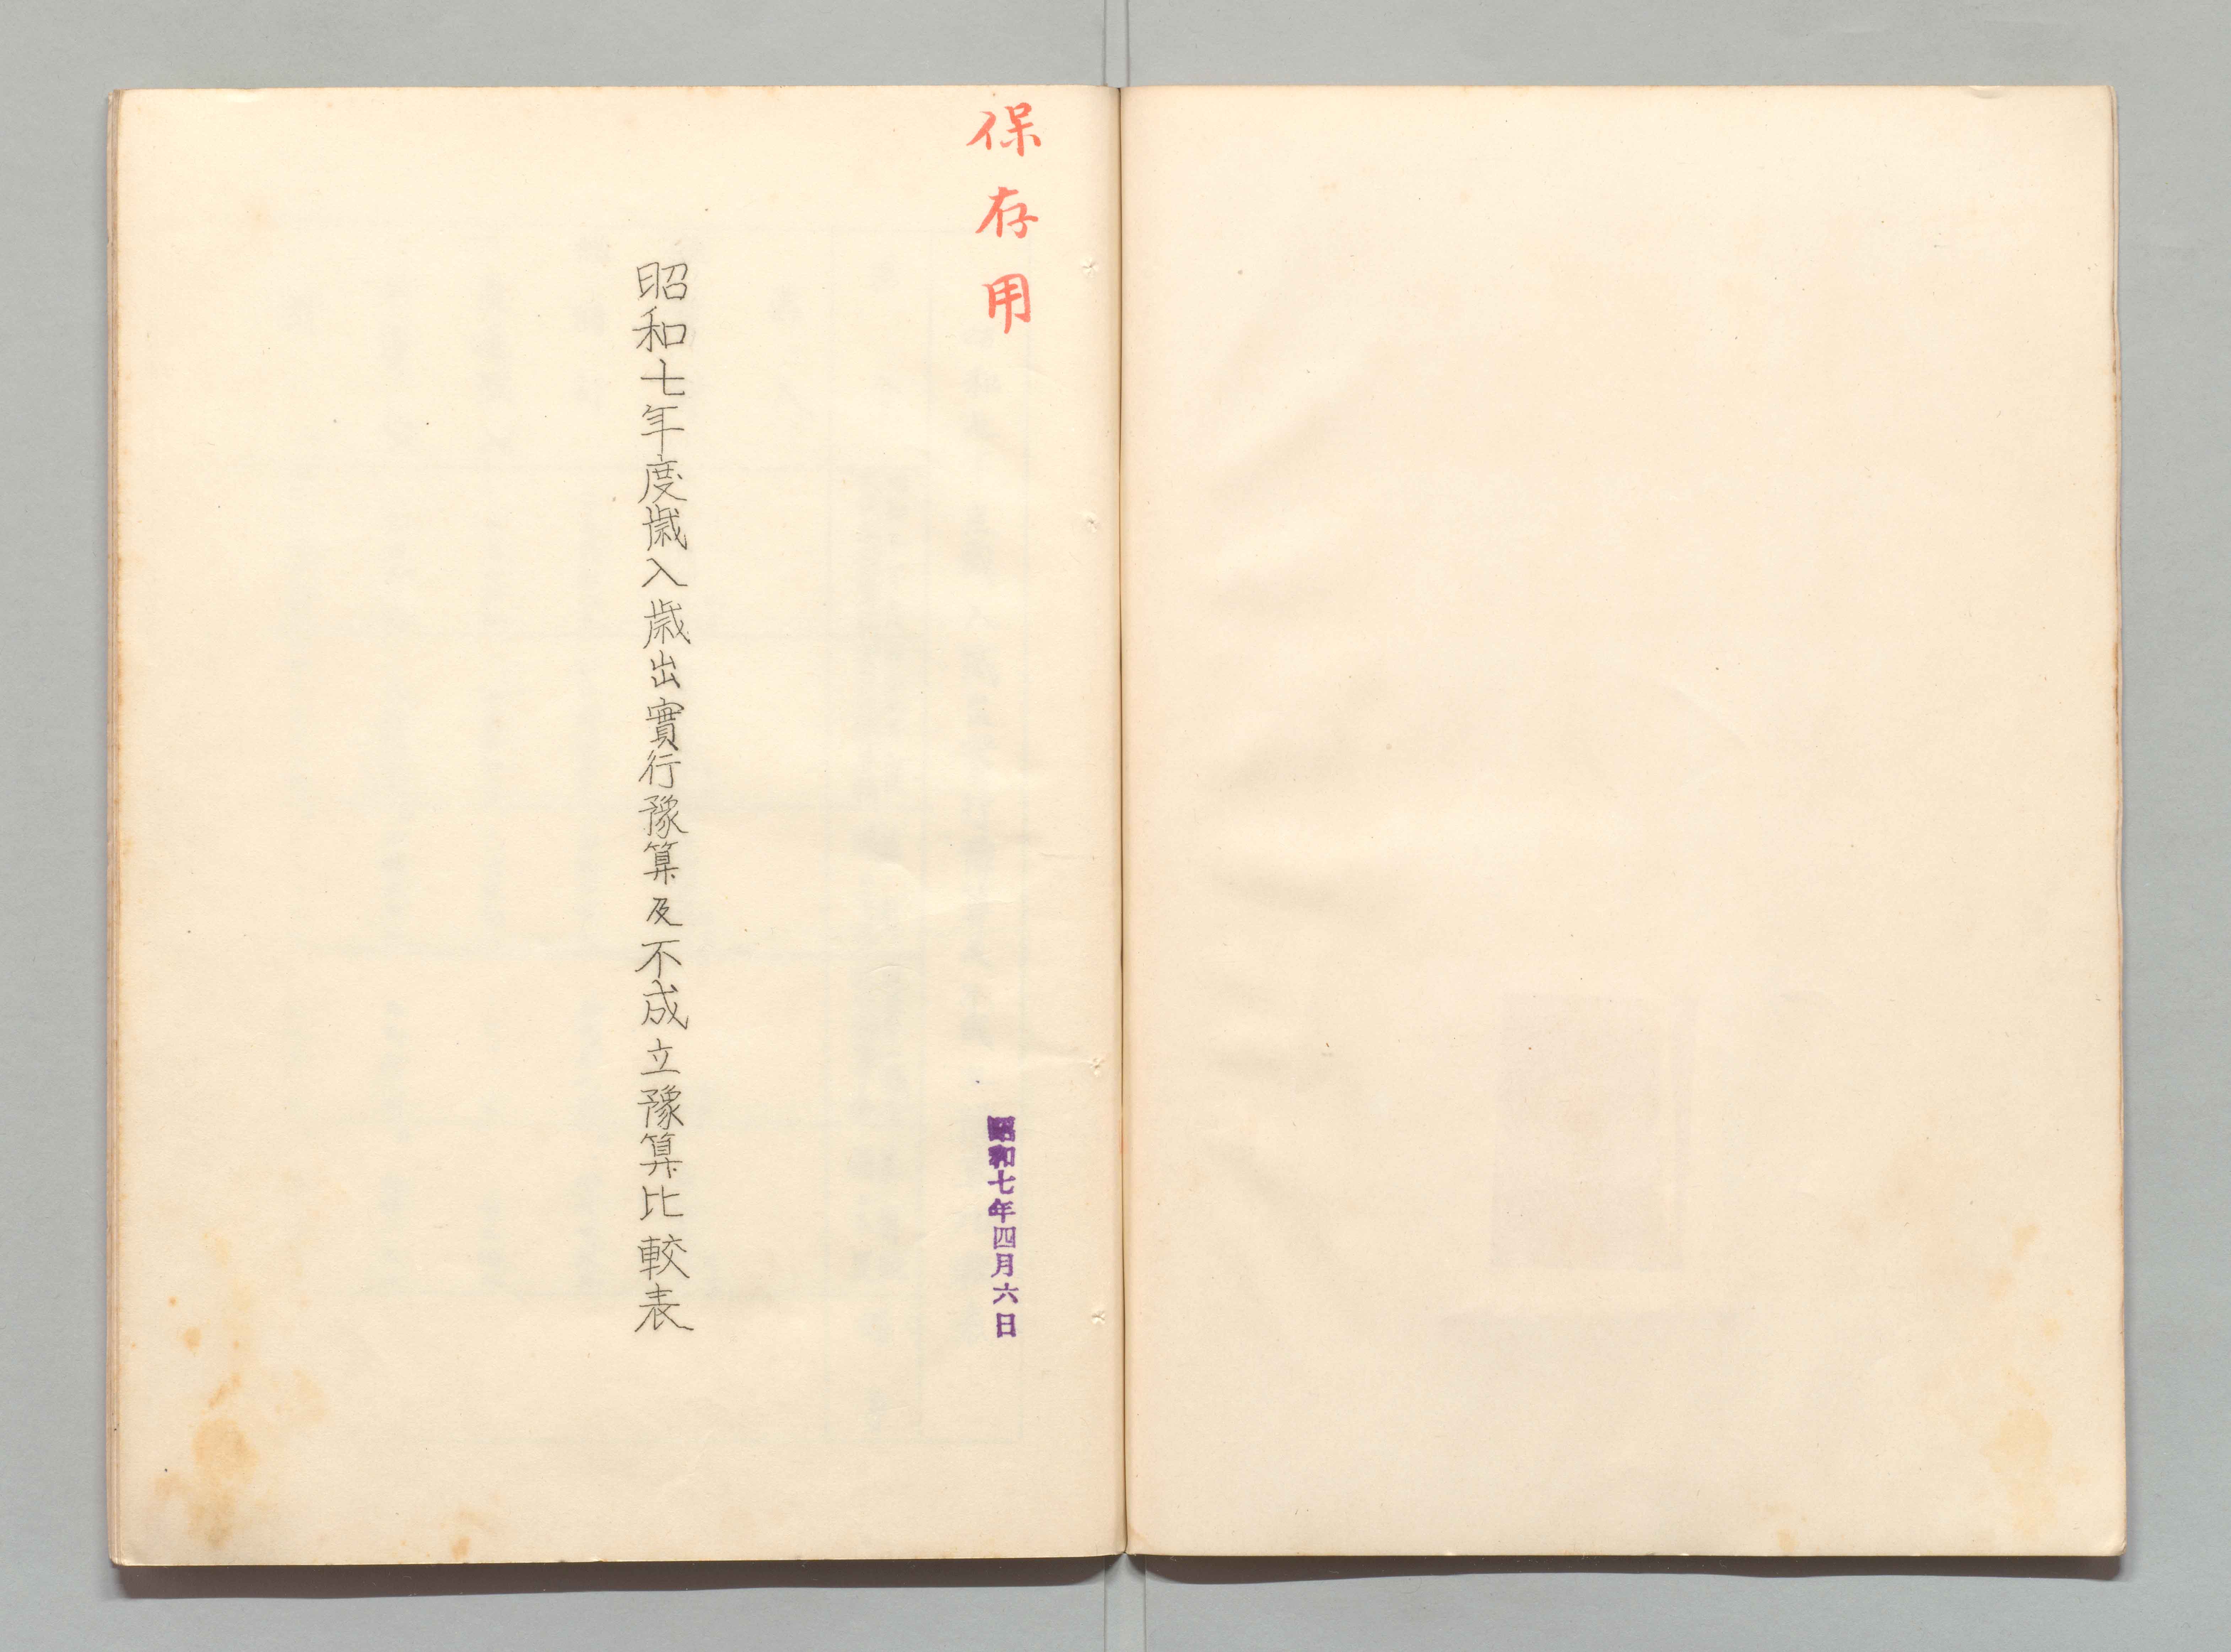 保存用
昭和七年四月六日
昭和七年度歳入歳出實行豫算及不成立豫算比較表